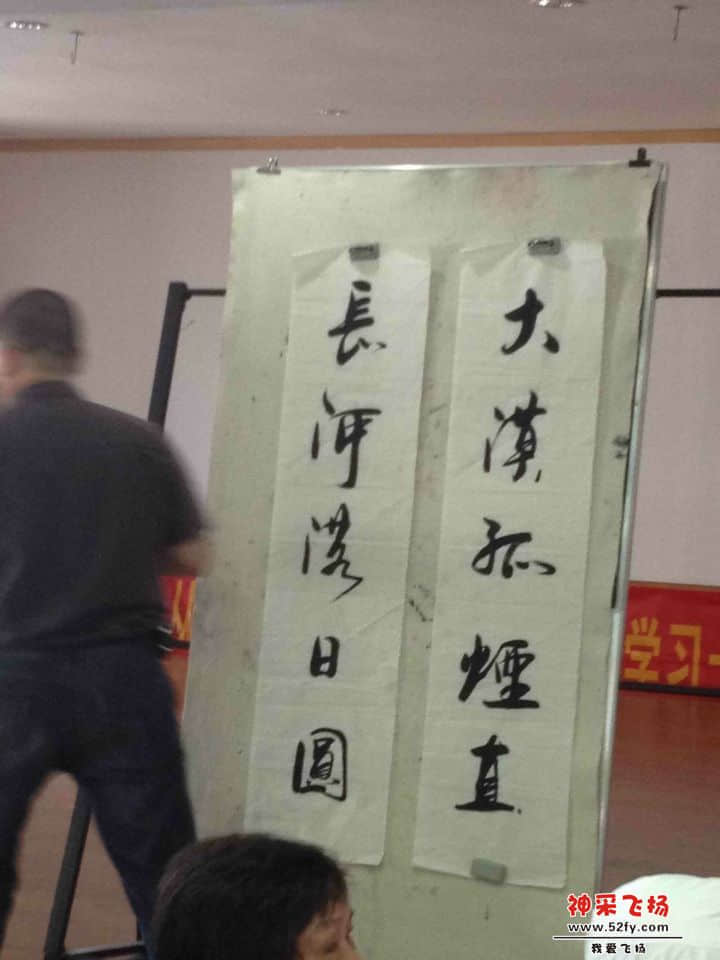 大漠孤煙直
長河落日圓
学习
神采飞扬
www.52fy.com
我爱飞扬